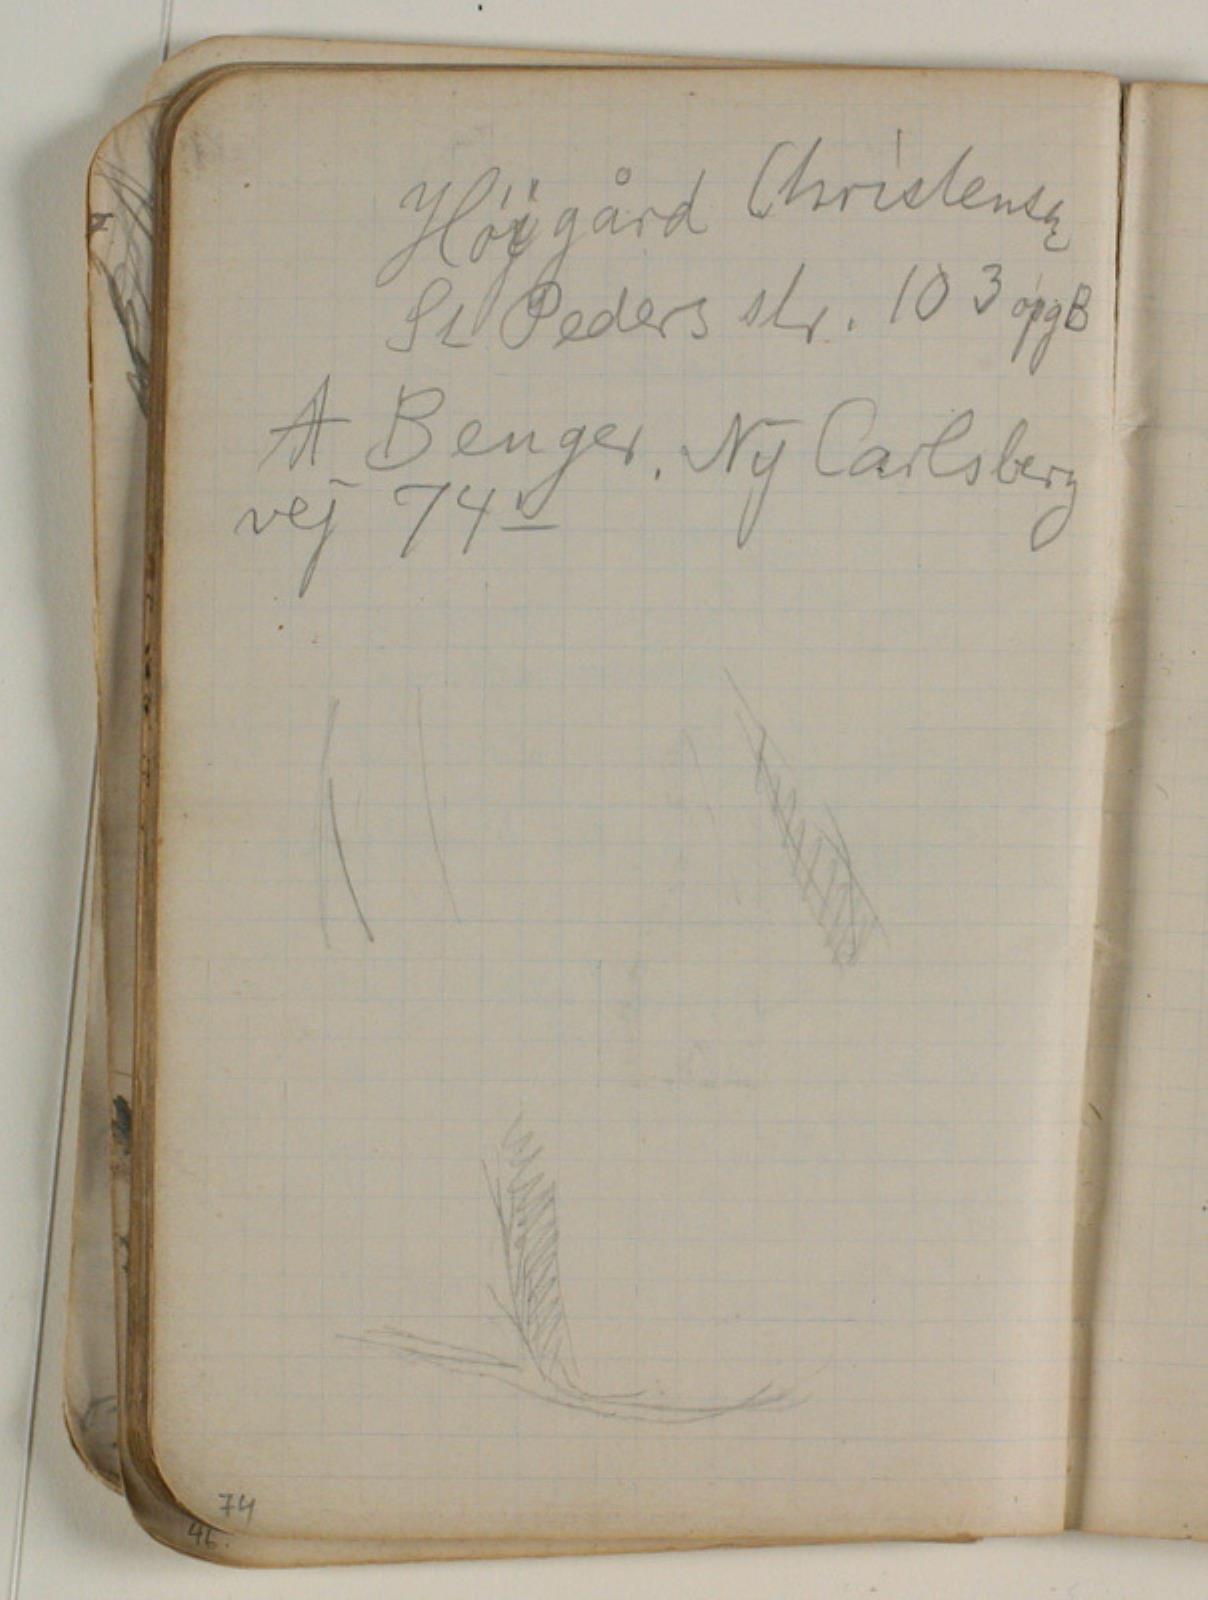 Höjgård Christensen
St Peders str. 10 3 opg B
A Benger. Ny Carlsberg
vej 74 v
74
46.